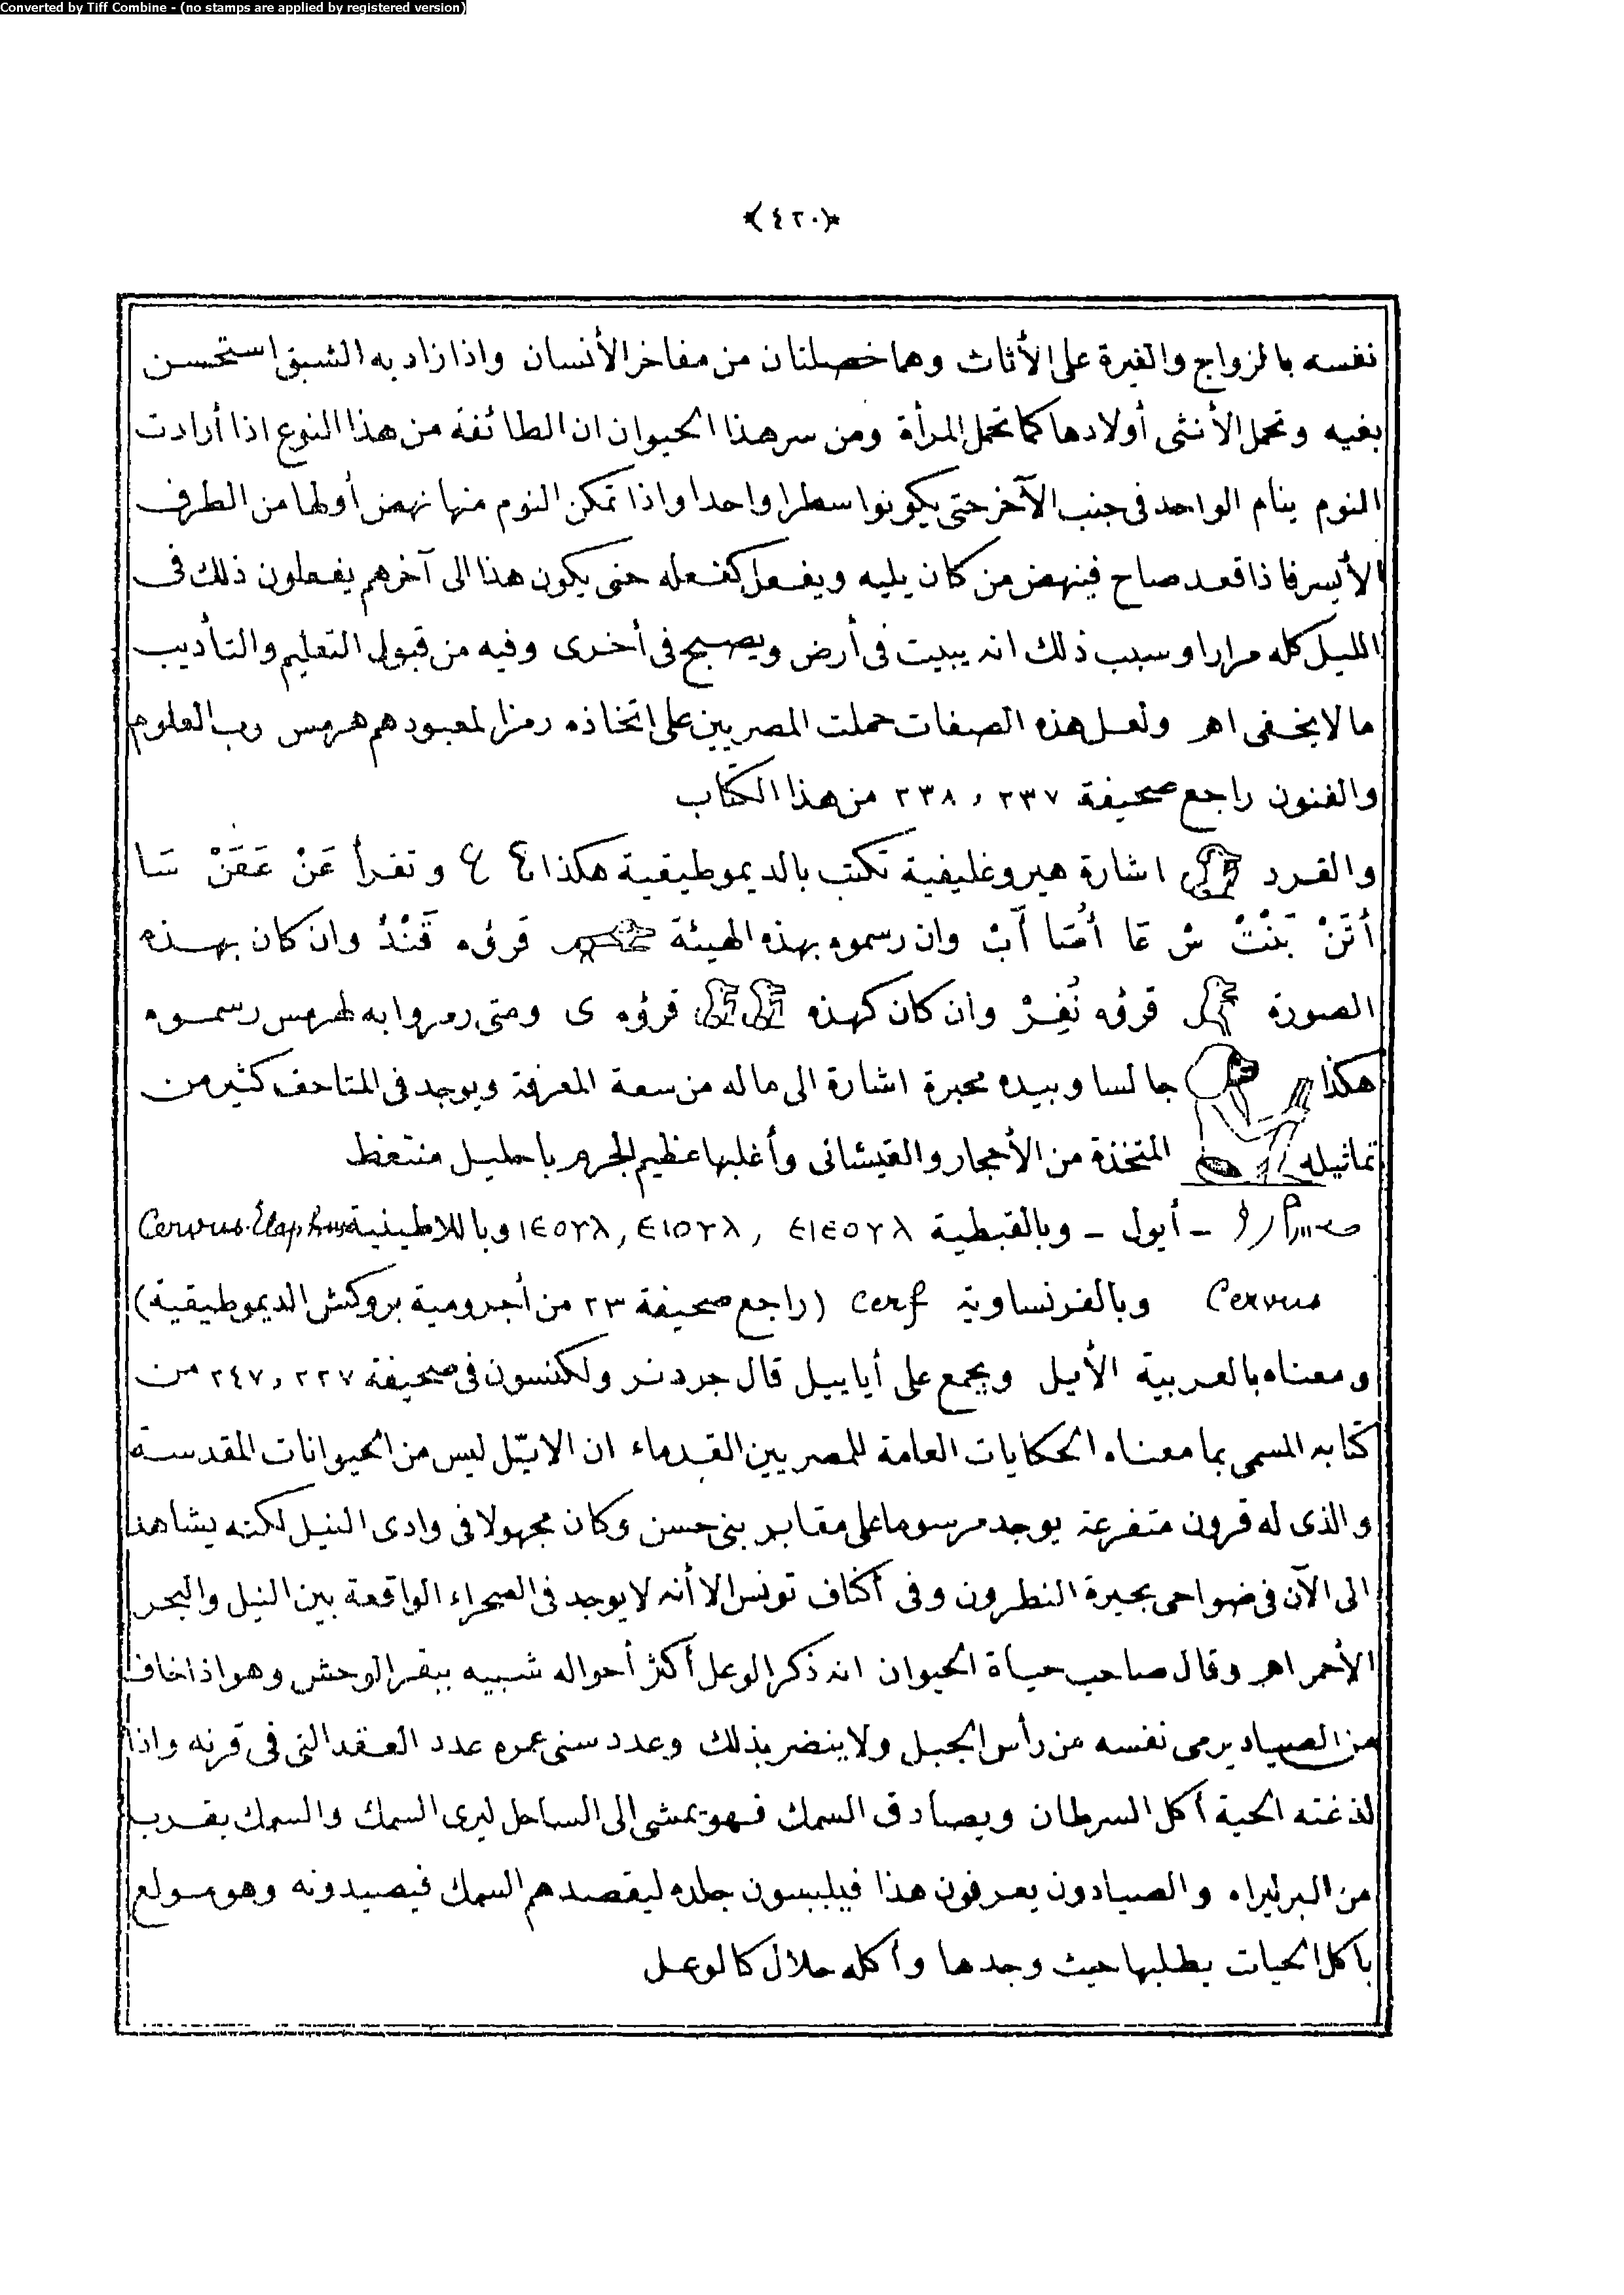 Converted by Tiff Combine - (no stamps are applied by registered version)
*(٤٢٠)*
نفسه بالزواج والغيرة على الأناث وهما خصلتان من مفاخر الأنسان واذا زاد به الشبق استحسن
بفيه وتحمل الأنثى أولادها كما تحمل المرأة ومن سر هذا الحيوان ان الطائفة من هذا النوع اذا أرادت
النوم ينام الواحد فى جنب الآخر حتى يكونوا سطرا واحدا واذا تمكن النوم منها نهض أولها من الطرف
الأيسر فاذا قعد صاح فينهض من كان يليه ويفعل كفعله حتى يكون هذا الى آخرهم يفعلون ذلك فى
الليل كله مرارا وسبب ذلك انه يبيت فى أرض ويصبح فى أخرى وفيه من قبول التعليم والتأديب
ما لا يخفى اهـ ولعل هذه الصفات حملت المصريين على اتخاذه رمزا لمعبودهم هرمس رب العلوم
والفنون راجع صحيفة ٢٣٧ , ٢٣٨ من هذا الكتاب
والقرد اشارة هيروغليفية تكتب بالديموطيقية هكذا وتقرأ عَنْ عَقَنْ سَا
أتَنْ بَنْتْ ش عَا أُمَّا آبْ وان رسموه بهذه الهيئة قرؤه قَنْدْ وان كان بهذه
الصورة قرؤه نُفِرْ وان كان كهذه قرؤه ى ومتى رمزوا به لهرمس رسموه
هكذا جالسا وبيده محبرة اشارة الى ماله من سعة المعرفة ويوجد فى المتاحف كثير من
تماثيله المتخذة من الأحجار والقيشانى وأغلبها عظيم الجرم باحليل منتغظ
ـ أيول ـ وبالقبطية ⲉⲓⲉⲟⲩⲗ , ⲉⲓⲟⲩⲗ , ⲓⲉⲟⲩⲗ وباللاطينية Cervus Elaphus
Cervus وبالفرنساوية cerf (راجع صحيفة ٢٣ من أجرومية بروكش الديموطيقية)
ومعناه بالعربية الأيل ويجمع على أياييل قال جردنر ولكنسون فى صحيفة ٢٢٧ , ٢٤٧ من
كتابه المسمى بما معناه الحكايات العامة للمصريين القدماء ان الايّل ليس من الحيوانات المقدسة
والذى له قرون متفرعة يوجد مرسوما على مقابر بنى حسن وكان مجهولا فى وادى النيل لكنه يشاهد
الى الآن فى ضواحى بحيرة النطرون وفى أكناف تونس الا أنه لا يوجد فى الصحراء الواقعة بين النيل والبحر
الأحمر اهـ وقال صاحب حياة الحيوان انه ذكر الوعل أكثر أحواله شبيه ببقر الوحش وهو اذا خاف
من الصياد يرمى نفسه من رأس الجبل ولا ينضر بذلك وعدد سنى عمره عدد العقد التى فى قرنه واذا
لذغته الحية أكل السرطان ويصادق السمك فهو يمشى الى الساحل ليرى السمك والسمك يقرب
من البر ليراه والصيادون يعرفون هذا فيلبسون جلده ليقصدهم السمك فيصيدونه وهو مولع
بأكل الحيات يطلبها حيث وجدها وأكله حلال كالوعل